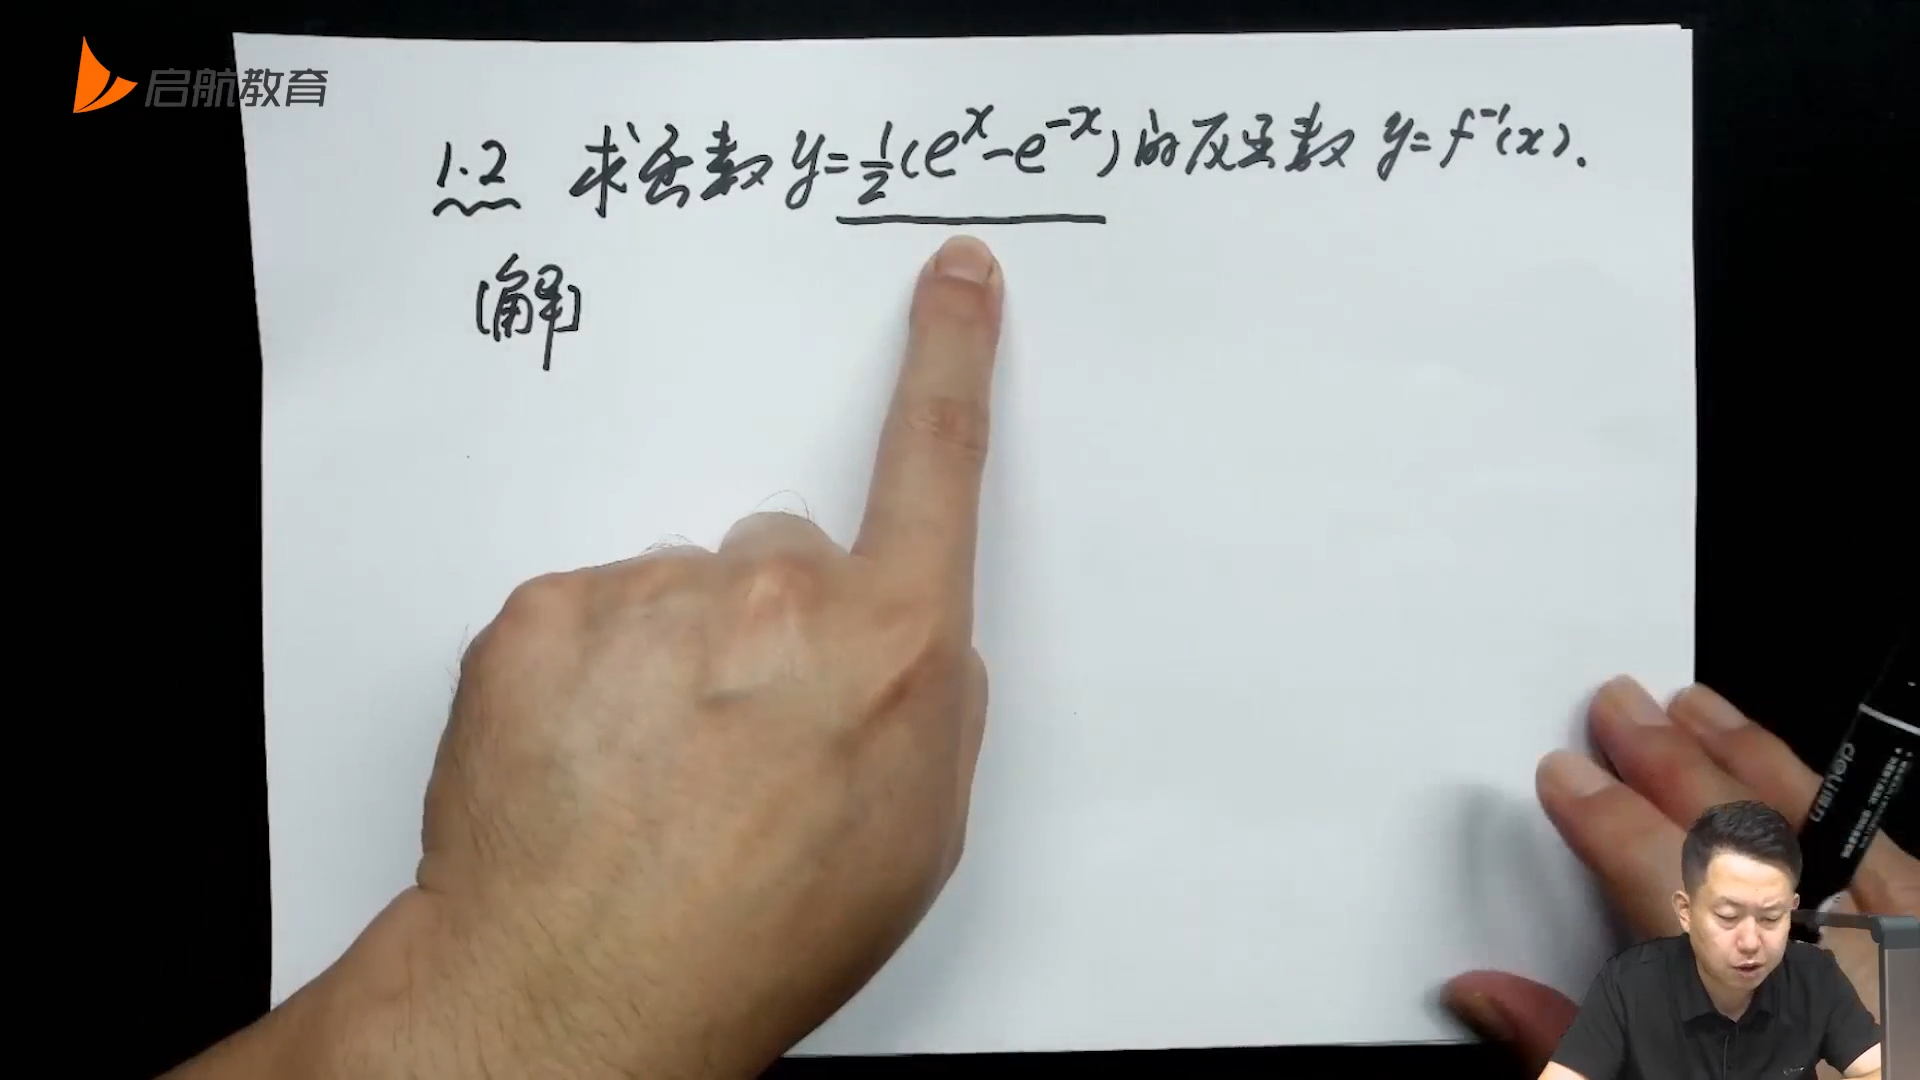 启航教育
1.2 求函数 y=½(eˣ-e⁻ˣ) 的反函数 y=f⁻¹(x).
[解]
deli